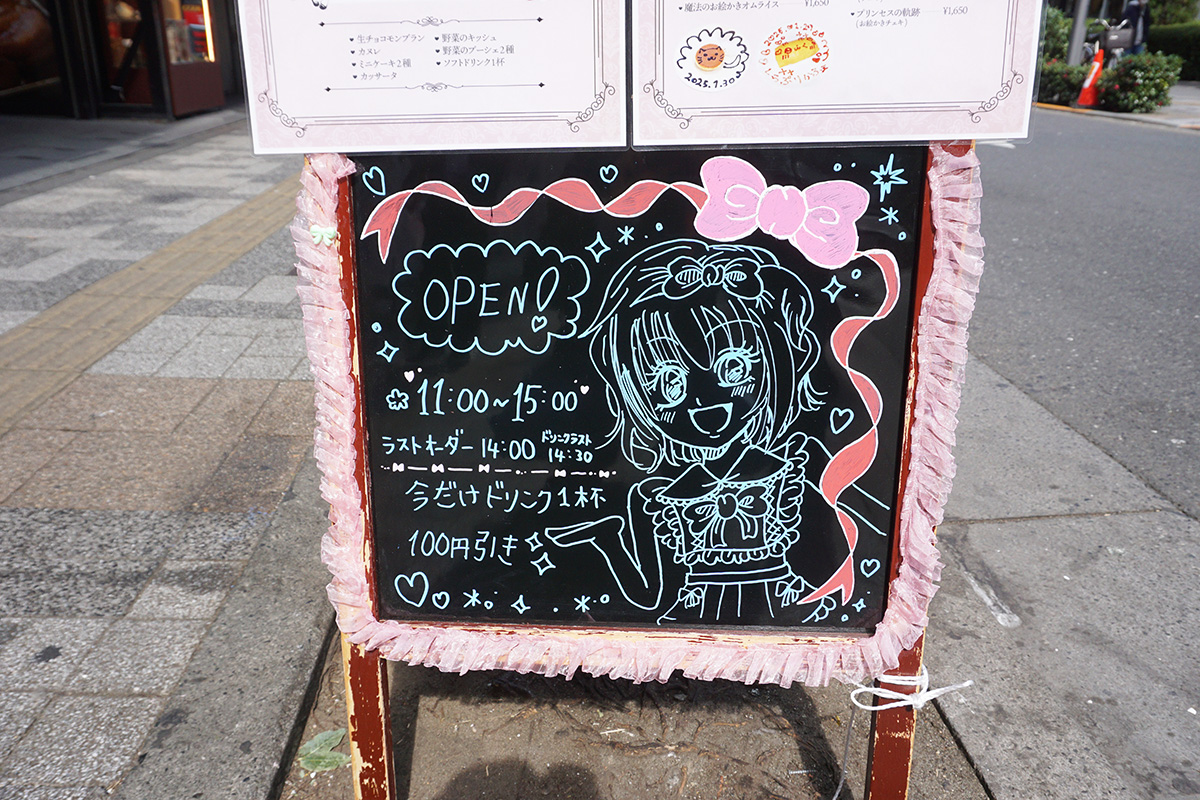 ♥ 生チョコモンブラン
♥ カヌレ
♥ ミニケーキ2種
♥ カッサータ
♥ 野菜のキッシュ
♥ 野菜のブーシェ2種
♥ ソフトドリンク1杯
♥ 魔法のお絵かきオムライス ¥1,650
♥ プリンセスの軌跡 ¥1,650
(お絵かきチェキ)
2025.7.30
OPEN!
11:00~15:00
ラストオーダー 14:00
ドリンクラスト
14:30
今だけドリンク1杯
100円引き